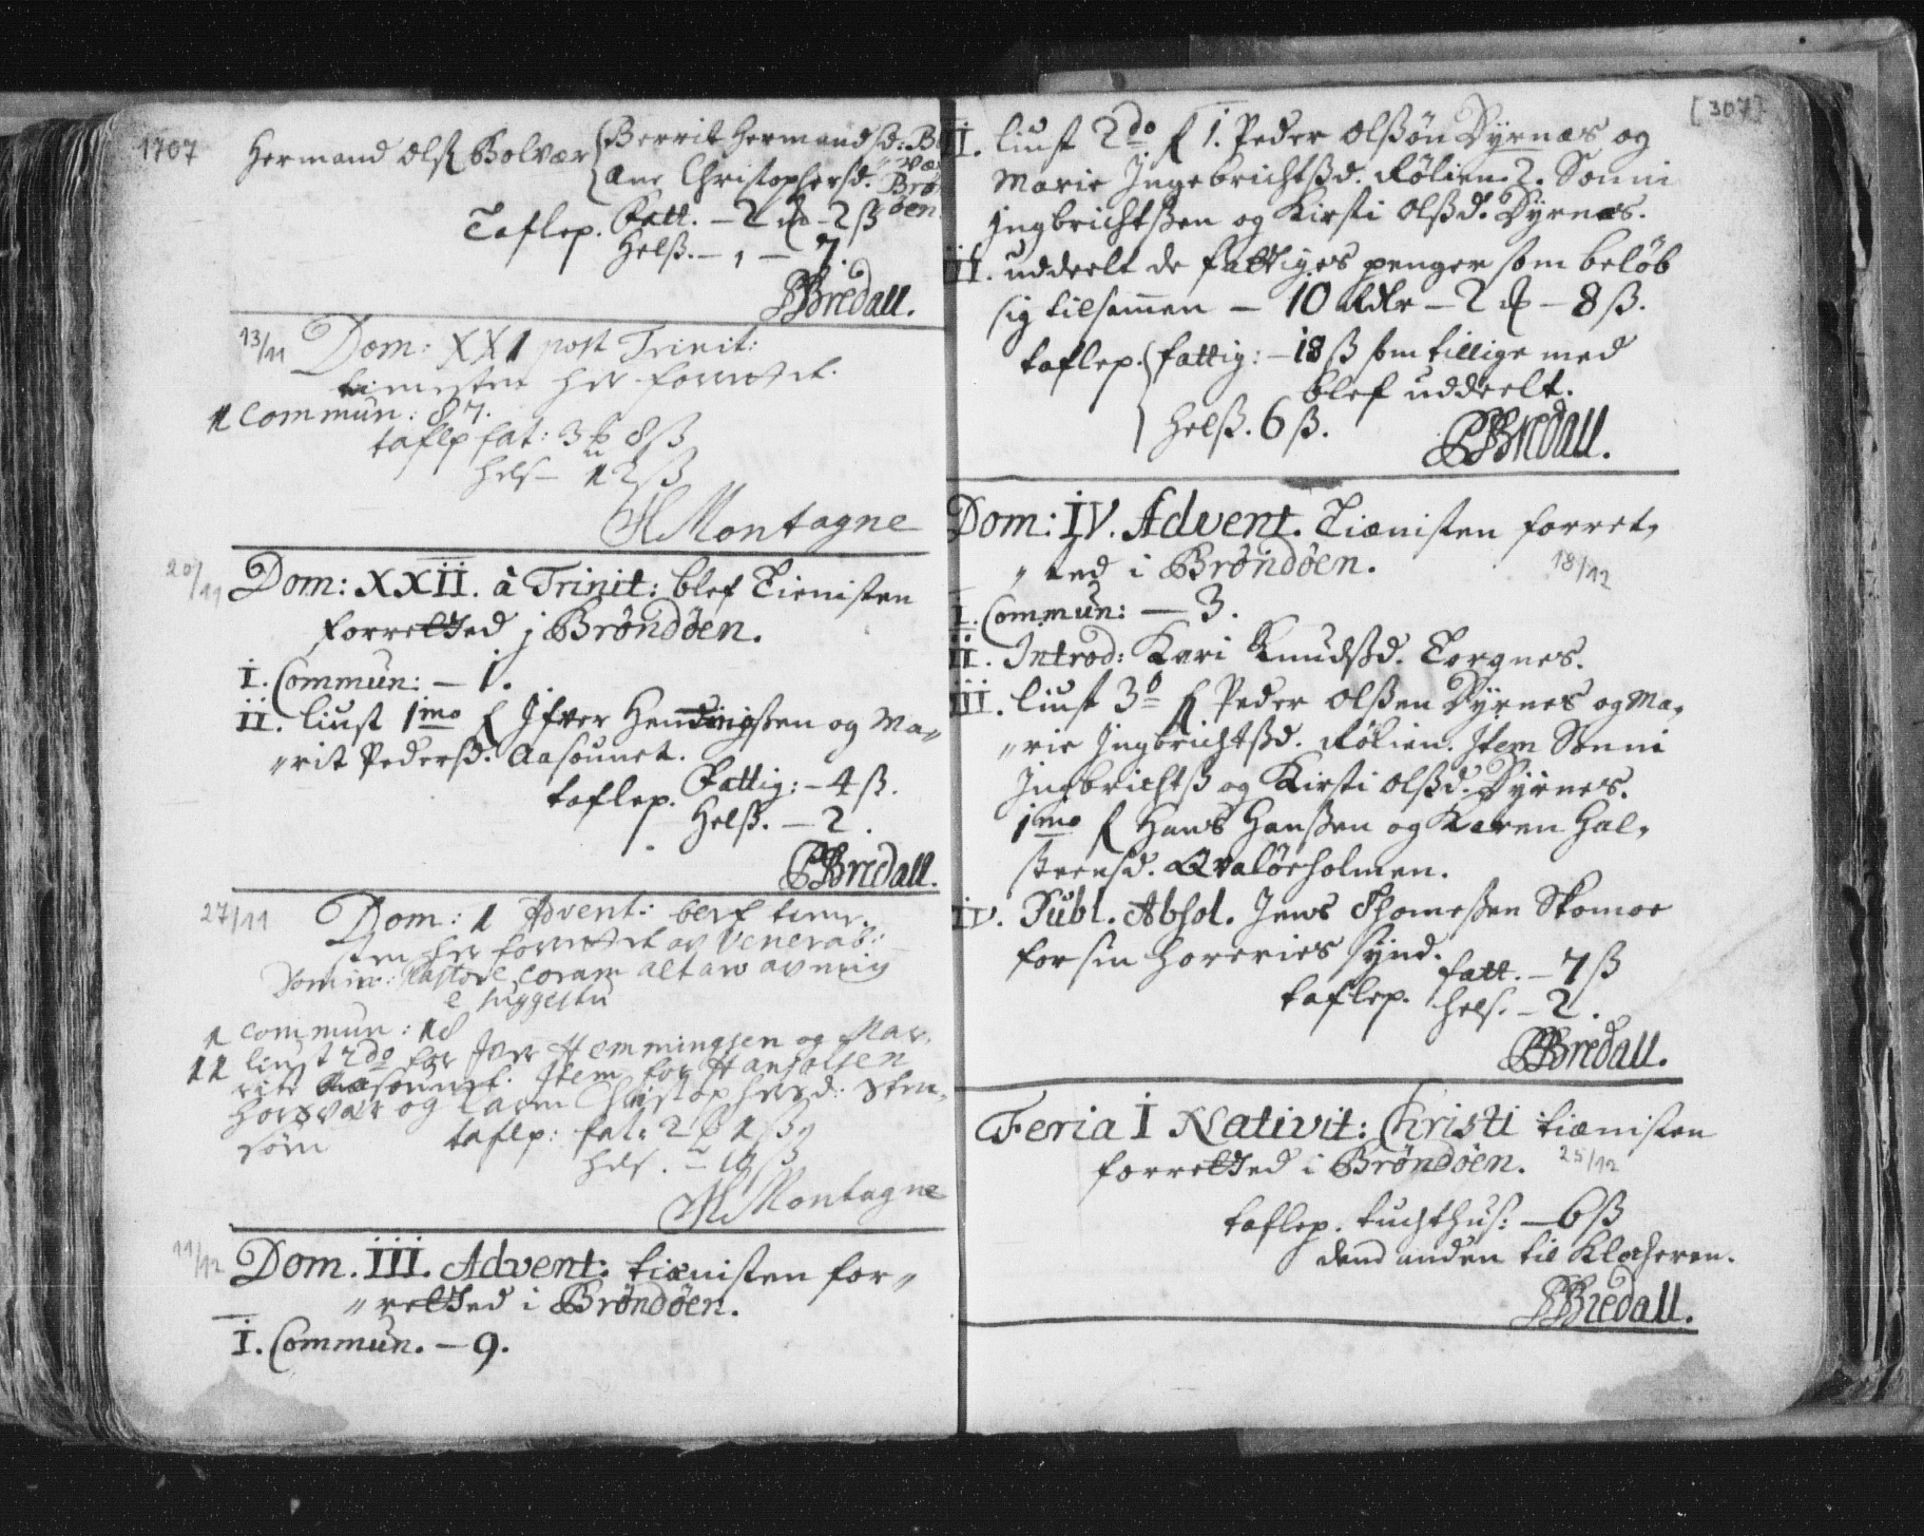 1707
Hermand Olss Bolvær { Berrit Hermandsd: Bol
vær
Ane Christophersd. Brøn
öen.
Taflep. Fatt. – 2 – 2 ß
Helß. – 1 – 7.
Bredall.
13/11
Dom: XXI post Trinit:
tienesten her forrettet.
1 Commun: 87.
taflp fat: 3 8ß
hels – 12ß
Montagne
20/11
Dom: XXII. à Trinit: blef Tienisten
forretted j Brøndöen.
I. Commun: – 1.
II. liust 1mo f Ifver Hemingsßen og Ma„
„rit Pedersd. Aasounet.
taflep. Fattig: – 4 ß.
Helß. – 2.
Bredall.
27/11
Dom: 1 Advent: blef tiene
sten her forrettet av Venerab:
Domin: Pastore coram altari av mig
e suggestu
1 commun: 18
11 liust 2do for Iver Hemmingsen og Mar„
rite Aasounet. Item for Hans olsen
Horsvær og Karen Christophersd: Sten„
söen
taflp: fat: 2 1ß
hels. – 10ß
Montagne
11/12
Dom. III. Advent: tiænisten for„
„retted i Brøndöen.
I. Commun. – 9.
[307]
II. liust 2do f 1. Peder Olßön Dyrnæs og
Marie Ingebrichtßd. Rölien. 2. Sonni
Ingbrichtßen og Kirsti Olßd. Dyrnæs.
III. uddeelt de fattiges penger som beløb
sig tilsamen – 10 Rdlr – 2 – 8 ß.
taflep. { fattig: – 18 ß som tillige med
blef uddeelt.
helß. 6 ß.
Bredall.
Dom: IV. Advent. Tiænisten forret„
„ted i Brøndöen.
18/12
I. Commun: – 3.
II. Introd: Kari Knudßd. Torgnes.
III. liust 3o f Peder Olßen Dyrnes og Ma„
„rie Ingbrichtßd. Rölien. Item Sonni
Ingbrichtß og Kirsti Olßd. Dyrnes.
1mo f Hans Hanßen og Karen Hal„
steensd. Qvalöeholmen.
IV. Publ. Absol. Jens Thomeßen Skomoe
for sin horeries synd.
taflep. fatt. – 7 ß
hels. – 2.
Bredall.
Feria I Nativit: Christi tiænisten
forretted i Brøndöen.
25/12
taflep. tuchthus: – 6 ß
dend anden til Klocheren.
Bredall.